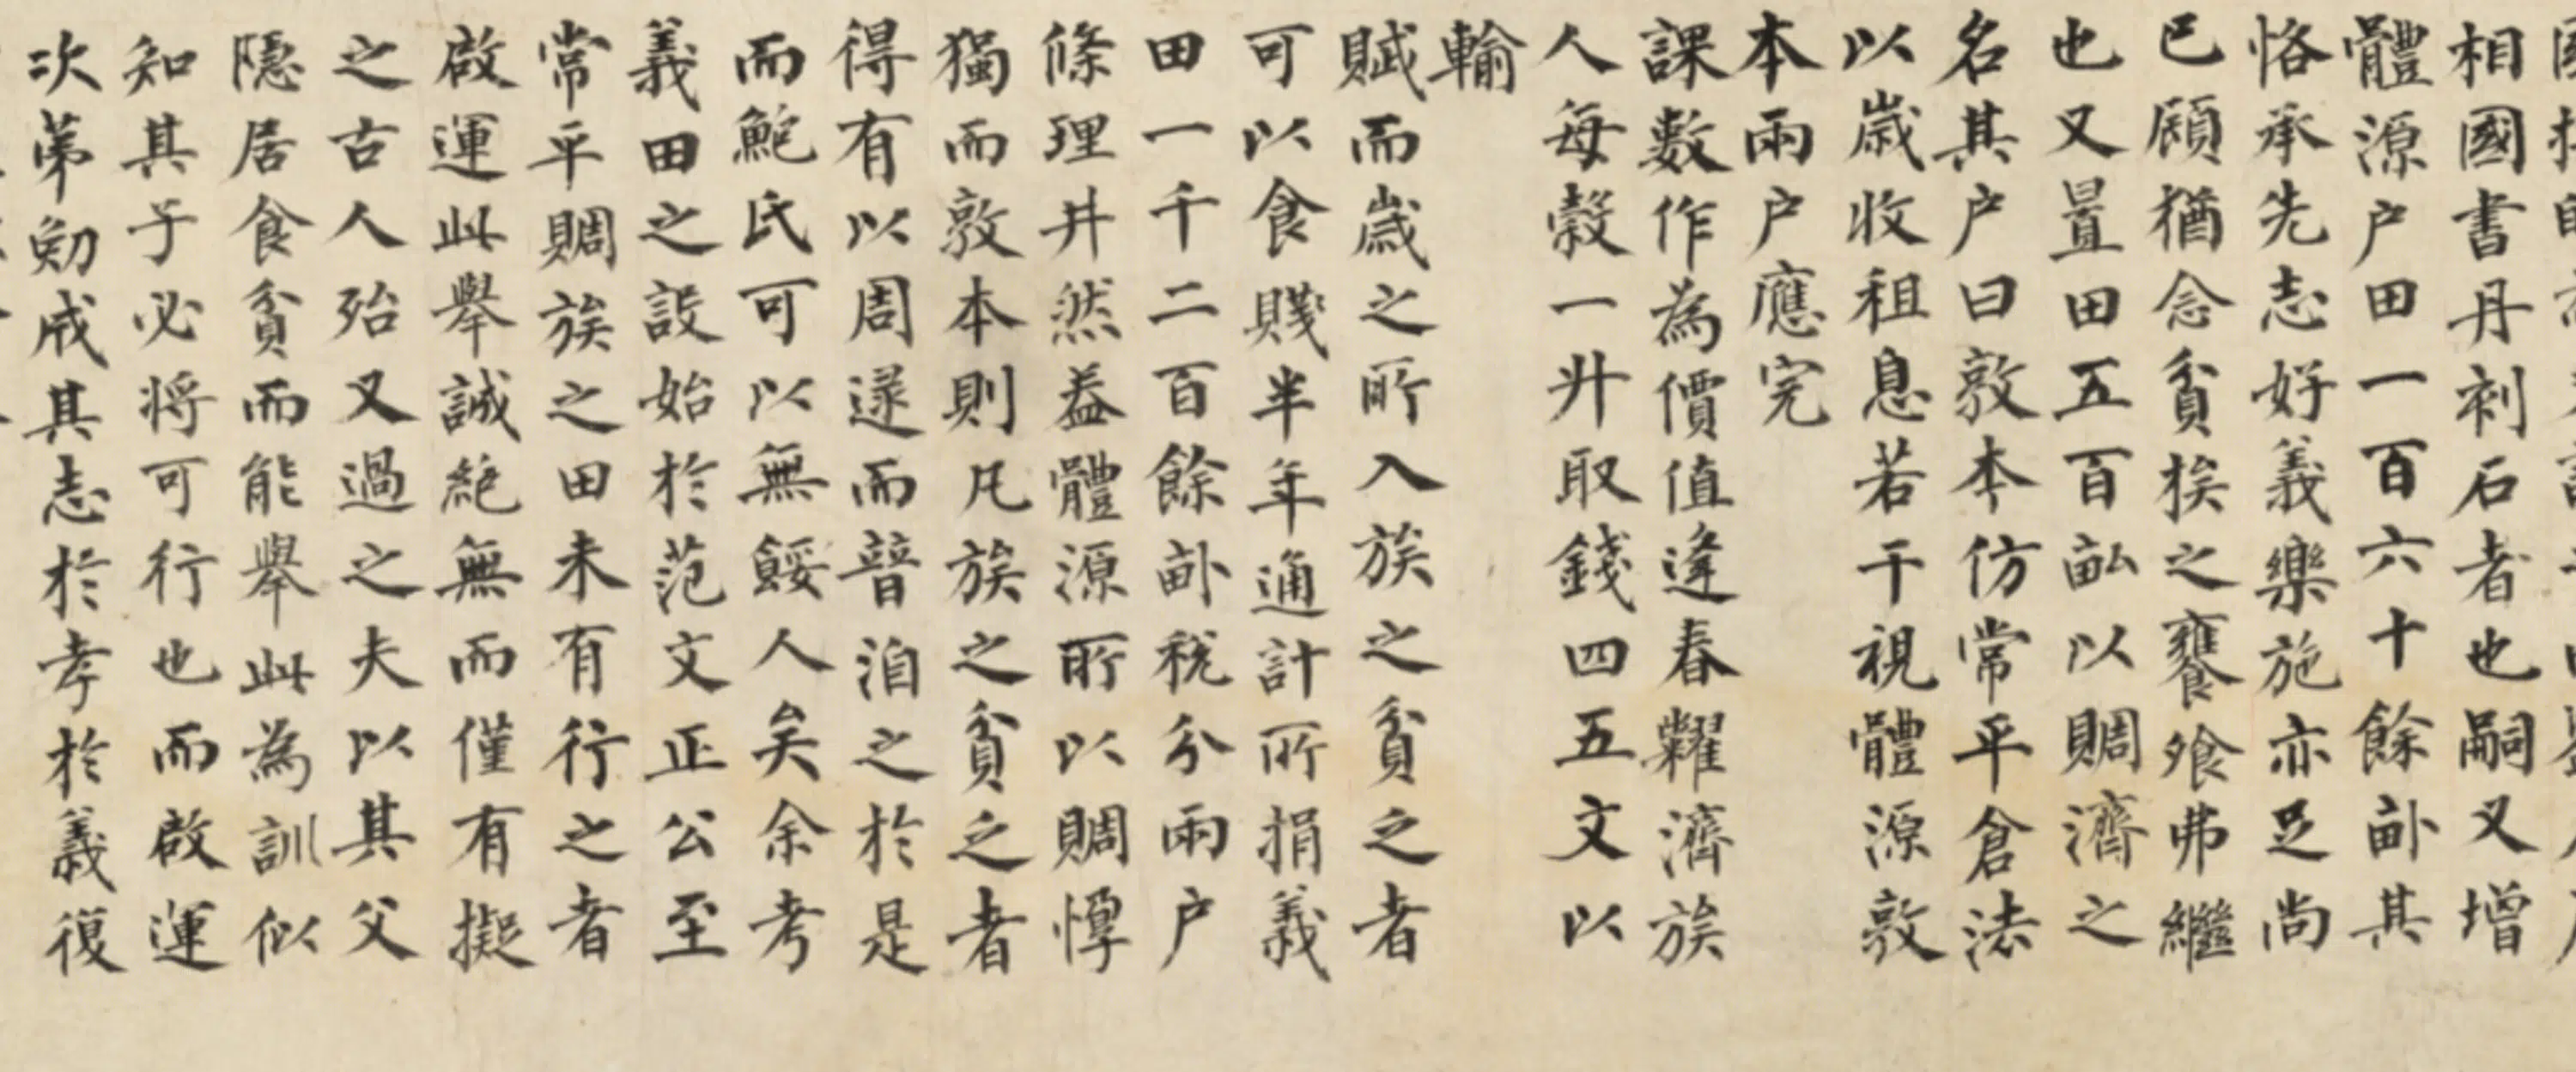 相國書丹刻石者也嗣又增
體源户田一百六十餘畝其
恪承先志好義樂施亦足尚
已顧猶念貧族之饔飧弗繼
也又置田五百畝以賙濟之
名其户曰敦本仿常平倉法
以歲收租息若干視體源敦
本兩户應完
課數作為價值逢春糶濟族
人每穀一升取錢四五文以
輸
賦而歲之所入族之貧之者
可以食賤半年通計所捐義
田一千二百餘畝稅分兩户
條理井然葢體源所以賙惸
獨而敦本則凡族之貧之者
得有以周遂而普洎之於是
而鮑氏可以無餒人矣余考
義田之設始於范文正公至
常平賙族之田未有行之者
啟運此舉誠絕無而僅有擬
之古人殆又過之夫以其父
隱居食貧而能舉此為訓似
知其子必將可行也而啟運
次第勉成其志於孝於義復